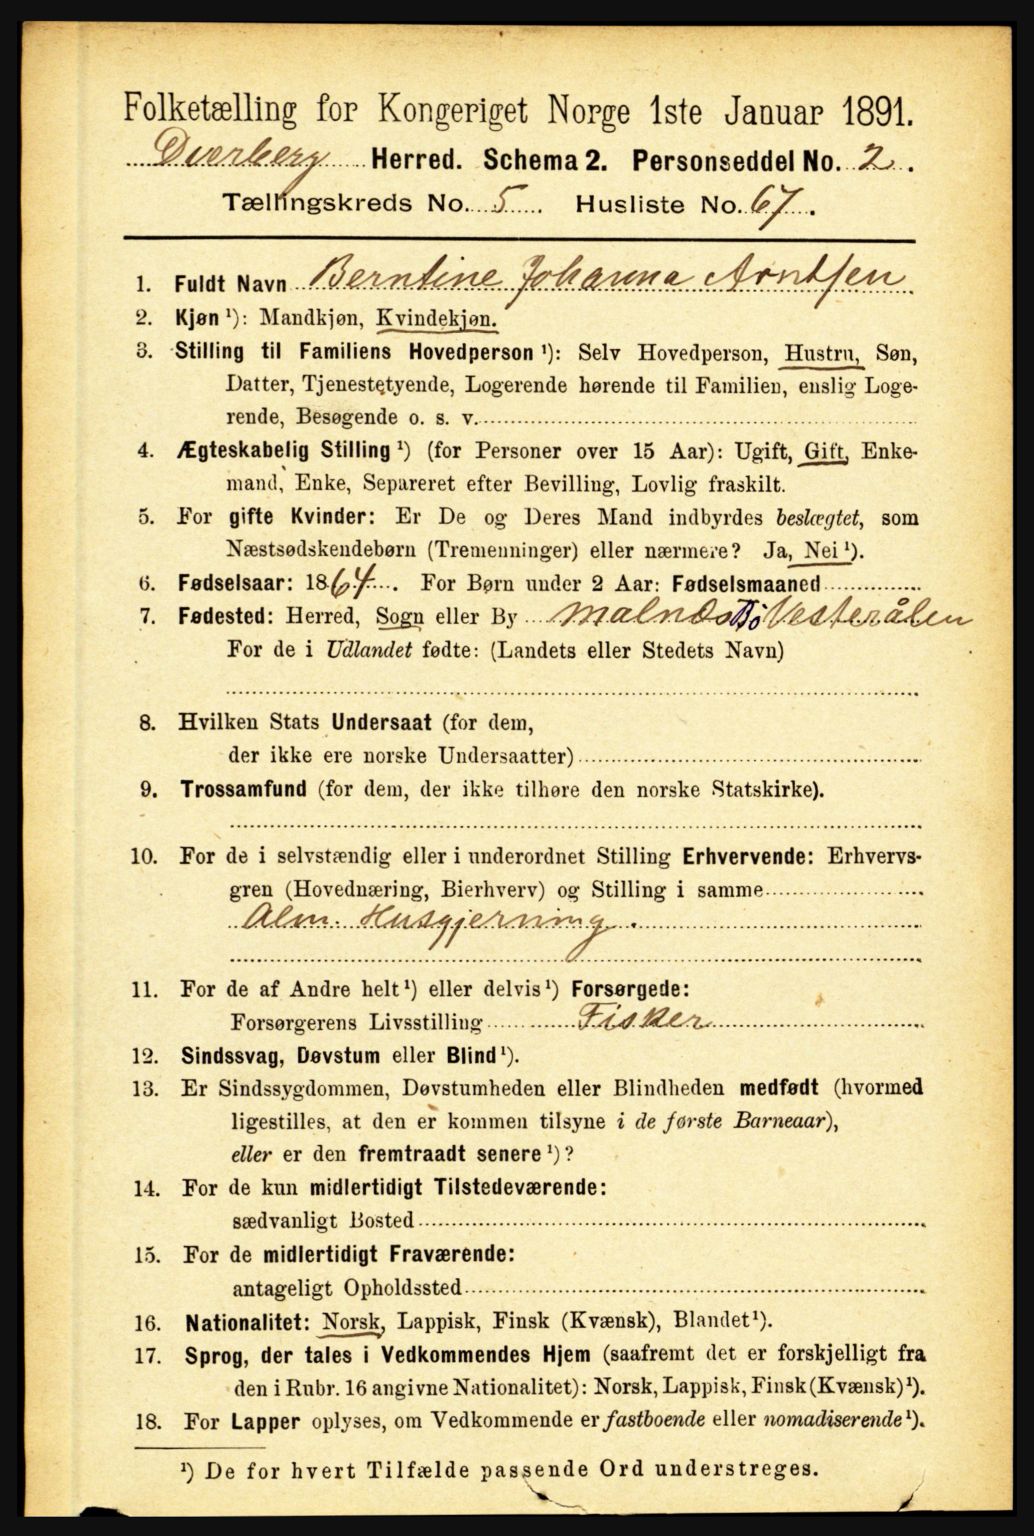 Folketælling for Kongeriget Norge 1ste Januar 1891.
Dverberg Herred. Schema 2. Personseddel No. 2.
Tællingskreds No. 5. Husliste No. 67.
1. Fuldt Navn Berntine Johanna Arntsen
2. Kjøn ¹): Mandkjøn, Kvindekjøn.
3. Stilling til Familiens Hovedperson ¹): Selv Hovedperson, Hustru, Søn,
Datter, Tjenestetyende, Logerende hørende til Familien, enslig Loge-
rende, Besøgende o. s. v.
4. Ægteskabelig Stilling ¹) (for Personer over 15 Aar): Ugift, Gift, Enke-
mand, Enke, Separeret efter Bevilling, Lovlig fraskilt.
5. For gifte Kvinder: Er De og Deres Mand indbyrdes beslægtet, som
Næstsødskendebørn (Tremenninger) eller nærmere? Ja, Nei ¹).
6. Fødselsaar: 1864. For Børn under 2 Aar: Fødselsmaaned
7. Fødested: Herred, Sogn eller By Malnæs Bø Vesterålen
For de i Udlandet fødte: (Landets eller Stedets Navn)
8. Hvilken Stats Undersaat (for dem,
der ikke ere norske Undersaatter)
9. Trossamfund (for dem, der ikke tilhøre den norske Statskirke).
10. For de i selvstændig eller i underordnet Stilling Erhvervende: Erhvervs-
gren (Hovednæring, Bierhverv) og Stilling i samme
Alm. Husgjerning.
11. For de af Andre helt ¹) eller delvis ¹) Forsørgede:
Forsørgerens Livsstilling Fisker
12. Sindssvag, Døvstum eller Blind ¹).
13. Er Sindssygdommen, Døvstumheden eller Blindheden medfødt (hvormed
ligestilles, at den er kommen tilsyne i de første Barneaar),
eller er den fremtraadt senere ¹)?
14. For de kun midlertidigt Tilstedeværende:
sædvanligt Bosted
15. For de midlertidigt Fraværende:
antageligt Opholdssted
16. Nationalitet: Norsk, Lappisk, Finsk (Kvænsk), Blandet ¹).
17. Sprog, der tales i Vedkommendes Hjem (saafremt det er forskjelligt fra
den i Rubr. 16 angivne Nationalitet): Norsk, Lappisk, Finsk (Kvænsk) ¹).
18. For Lapper oplyses, om Vedkommende er fastboende eller nomadiserende ¹).
¹) De for hvert Tilfælde passende Ord understreges.